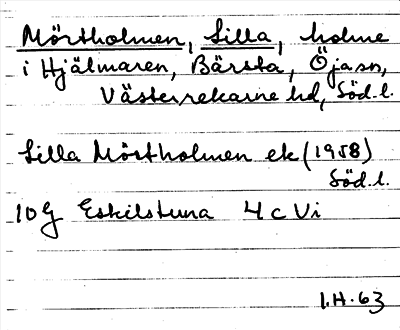 Mörtholmen, Lilla, holme
i Hjälmaren, Bärsta, Öja sn,
Västerrekarne hd, Söd. l.
Lilla Mörtholmen ek (1958)
Söd. l.
10 G Eskilstuna 4 c Vi
I.H. 63